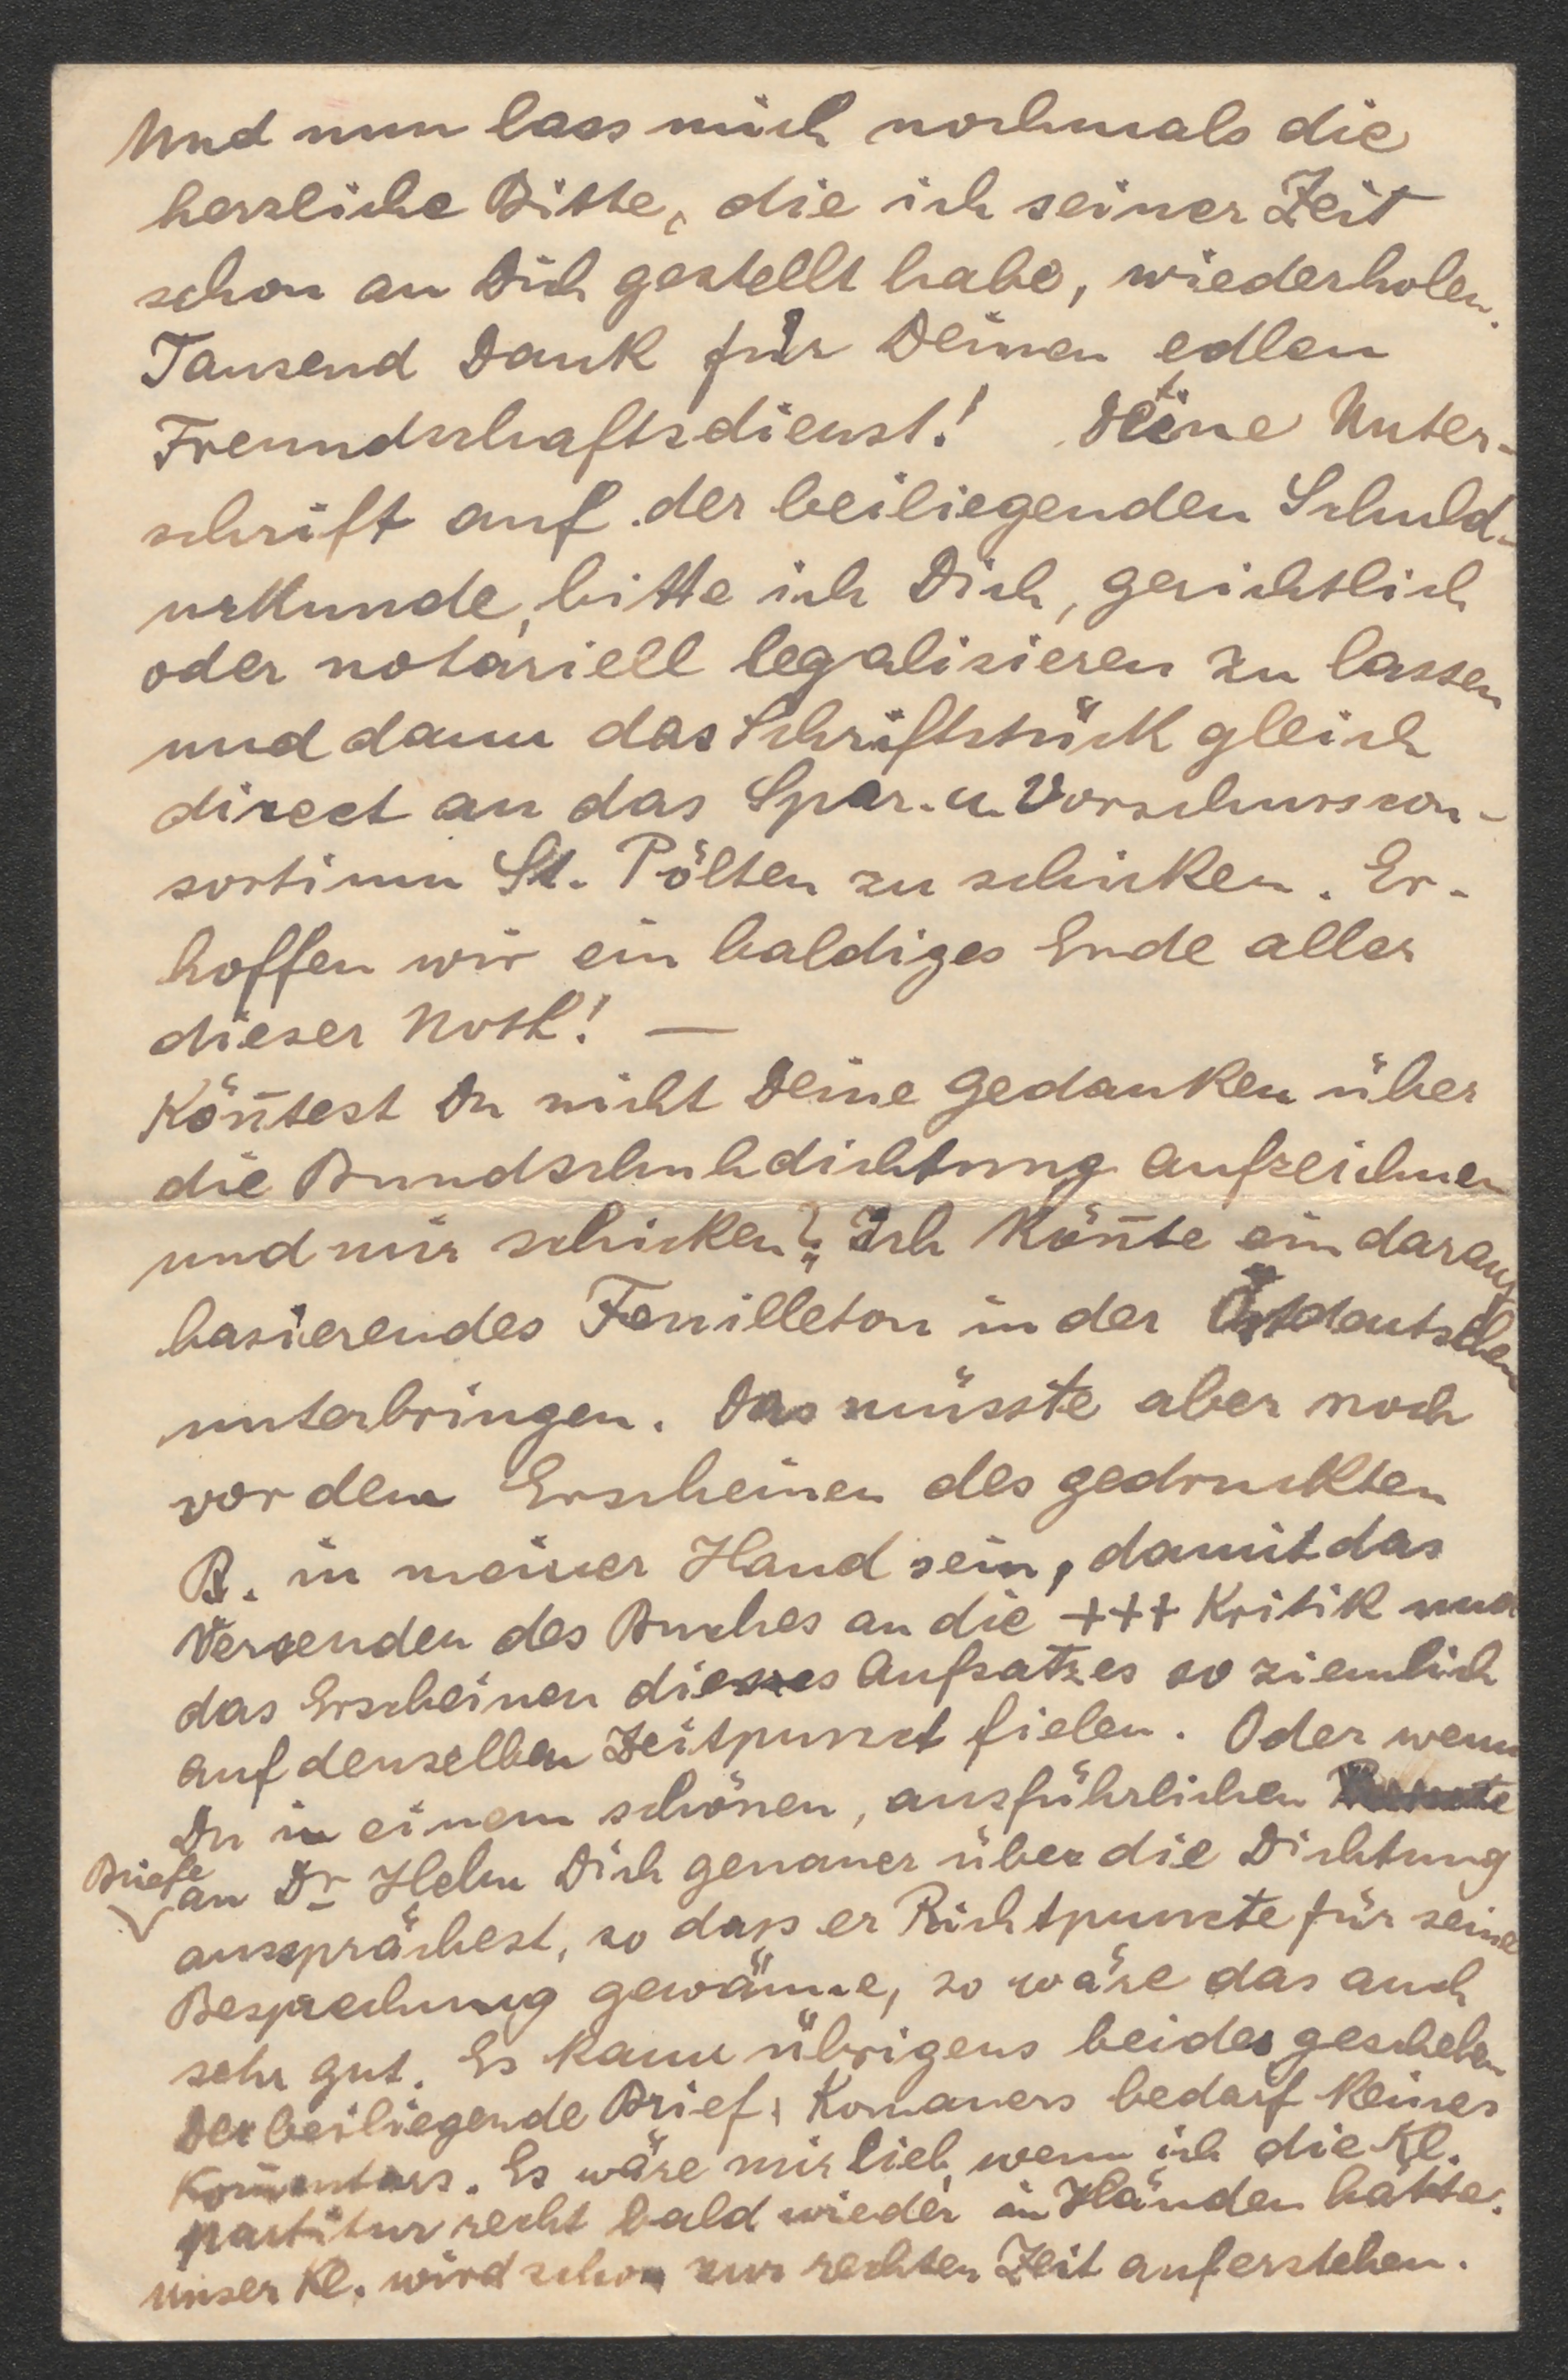 Und nun lass mich nochmals die
herzliche Bitte, die ich seiner Zeit
schon an Dich gestellt habe, wiederholen.
Tausend Dank für Deinen edlen
Freundschaftsdienst! Deine Unter-
schrift auf der beiliegenden Schuld-
urkunde, bitte ich Dich, gerichtlich
oder notariell legalisieren zu lassen
und dann das Schriftstück gleich
direct an das Spar- u. Vorschusscon-
sortium St. Pölten zu schicken. Er-
hoffen wir ein baldiges Ende aller
dieser Noth! —
Kön̄test Du nicht Deine Gedanken über
die Bundschuhdichtung aufzeichnen
und mir schicken? Ich kön̄te ein darauf
basierendes Feuilleton in der Ostdeutschen
unterbringen. Das müsste aber noch
vor dem Erscheinen des gedruckten
B. in meiner Hand sein, damit das
Versenden des Buches an die +++ Kritik und
das Erscheinen dieses Aufsatzes so ziemlich
auf denselben Zeitpunct fielen. Oder wenn
Du in einem schönen, ausführlichen
Briefe an Dr Helm Dich genauer über die Dichtung
aussprächest, so dass er Richtpuncte für seine
Besprechung gewänne, so wäre das auch
sehr gut. Es kann übrigens beides geschehen
Der beiliegende Brief Komauers bedarf keines
Kom̄entars. Es wäre mir lieb, wenn ich die Kl.
partitur recht bald wieder in Händen hätte.
Unser Kl. wird schon zur rechten Zeit auferstehen.